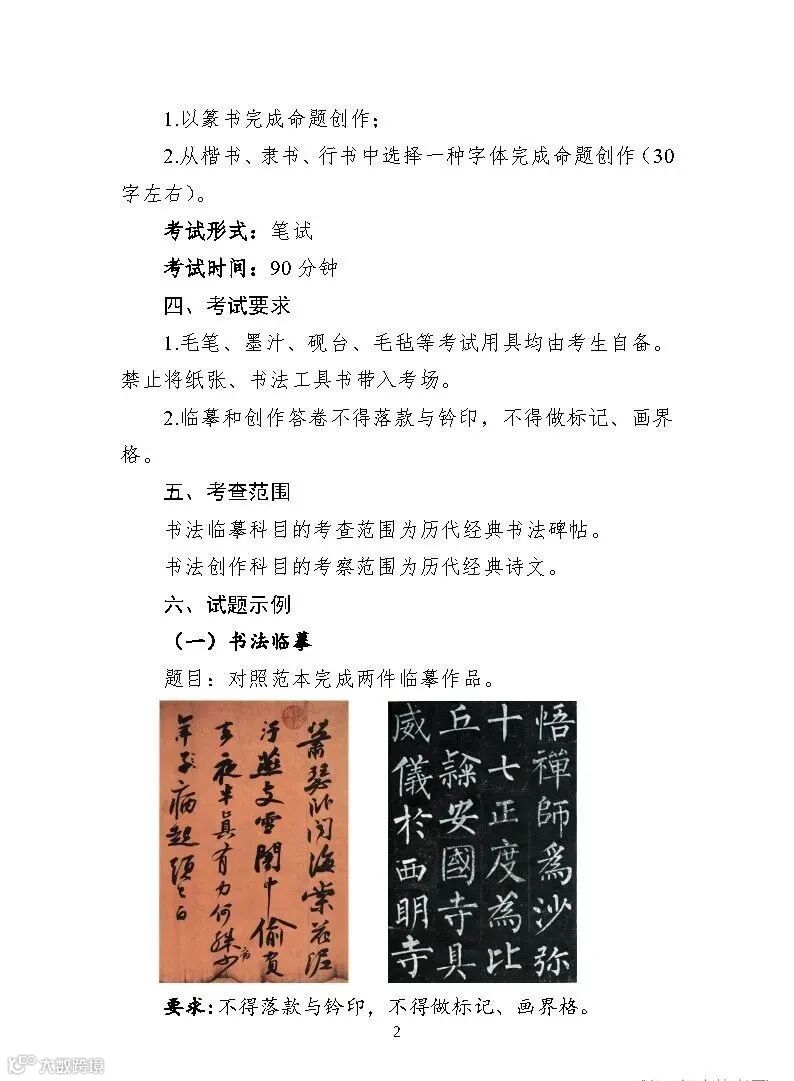 1.以篆书完成命题创作；
2.从楷书、隶书、行书中选择一种字体完成命题创作（30
字左右）。
考试形式：笔试
考试时间：90 分钟
四、考试要求
1.毛笔、墨汁、砚台、毛毡等考试用具均由考生自备。
禁止将纸张、书法工具书带入考场。
2.临摹和创作答卷不得落款与钤印，不得做标记、画界
格。
五、考查范围
书法临摹科目的考查范围为历代经典书法碑帖。
书法创作科目的考察范围为历代经典诗文。
六、试题示例
（一）书法临摹
题目：对照范本完成两件临摹作品。
萧瑟卧闻海棠花泥
污燕支雪闇中偷负
去夜半真有力何殊少
病
年子病起须已白
悟禪師為沙弥
十七正度為比
丘隸安國寺具
威儀於西明寺
要求：不得落款与钤印，不得做标记、画界格。
2
大数跨境